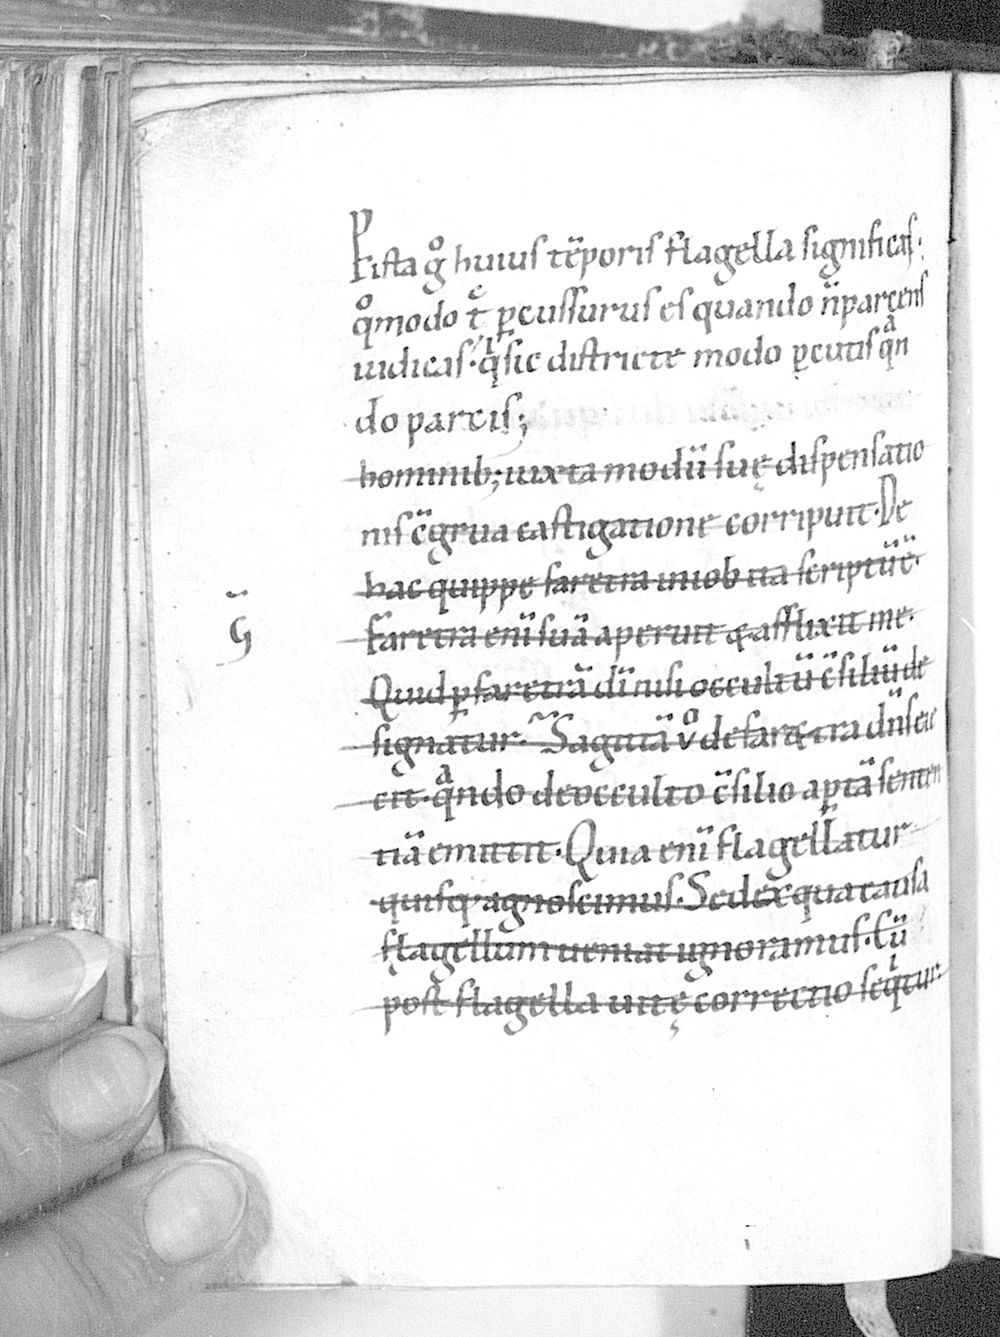 P ista gͦ huius tēporis flagella significas.
qͦmodo tͨ ꝑcussurus es quando n̄ parcens
iudicas. qͥ sic districte modo ꝑcutis qᵃn
do parcis;
hominib; iuxta modū suę dispensatio
nis c̄grua castigatione corripuit. De
hac quippe faretra iniob ita scriptū ē.
Faretra enī suā aperuit & afflixit me.
Quid ꝑ faretrā dī nisi occultū c̄siliū de
signatur. Sagittā vͦ de faretra dn̄s eie
cit. qᵃndo de occulto c̄silio aptā senten
tiā emittit. Quia enī flagellatur
quisq; agnoscimus. Sed ex qua causa
flagellum ueniat ignoramus. Cū
post flagella uitę correctio seqͥtur.